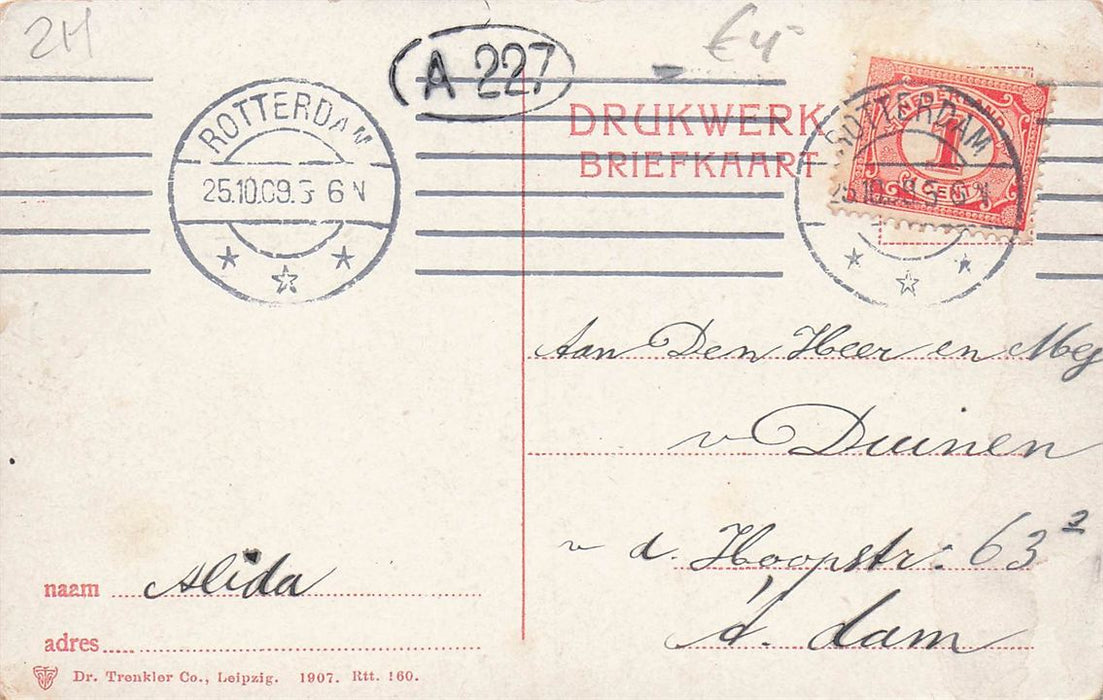 2H
€4-
A 227
ROTTERDAM
25.10.09. 5-6 N
DRUKWERK
BRIEFKAART
ROTTERDAM
25.10.09. 5-6 N
NEDERLAND
1
CENT
Aan Den Heer en Mej
v Duinen
v d. Hoopstr: 63²
A. dam
naam Alida
adres
Dr. Trenkler Co., Leipzig. 1907. Rtt. 160.